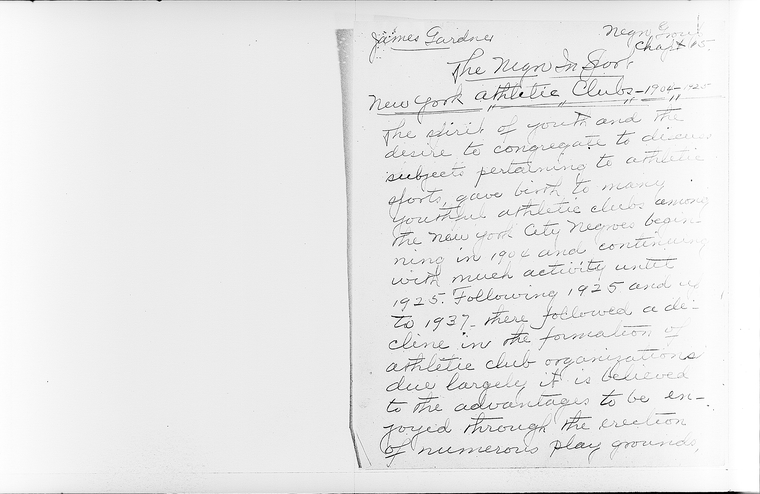 James Gardner
Negro Group
Chapt 15.
The Negro In Sport
New York Athletic Clubs - 1904-1925
The spirit of youth and the
desire to congregate to discuss
subjects pertaining to athletic
sports, gave birth to many
youthful athletic clubs among
the New York City Negroes begin-
ning in 1904 and continuing
with much activity until
1925. Following 1925 and up
to 1937 - there followed a de-
cline in the formation of
athletic club organizations
due largely it is believed
to the advantages to be en-
joyed through the erection
of numerous play grounds,